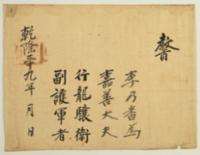 敎旨
李乃蕃爲
嘉善大夫
行龍驤衛
副護軍者
乾隆 九年 月 日